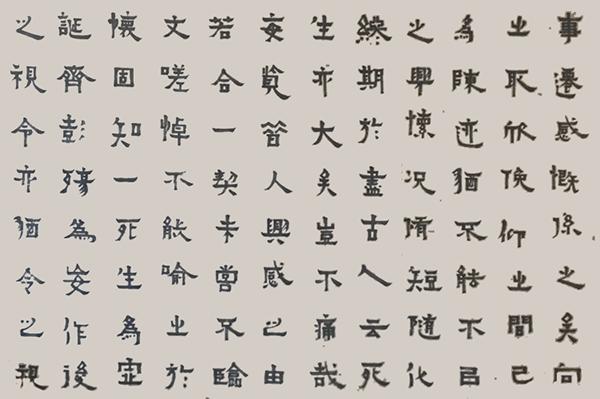 事遷感慨係之矣向
之所欣俛仰之間已
為陳迹猶不能不㠯
之興懷况脩短隨化
終期於盡古人云死
生亦大矣豈不痛哉
每覽昔人興感之由
若合一契未嘗不臨
文嗟悼不能喻之於
懷固知一死生為虛
誕齊彭殤為妄作後
之視今亦猶今之視